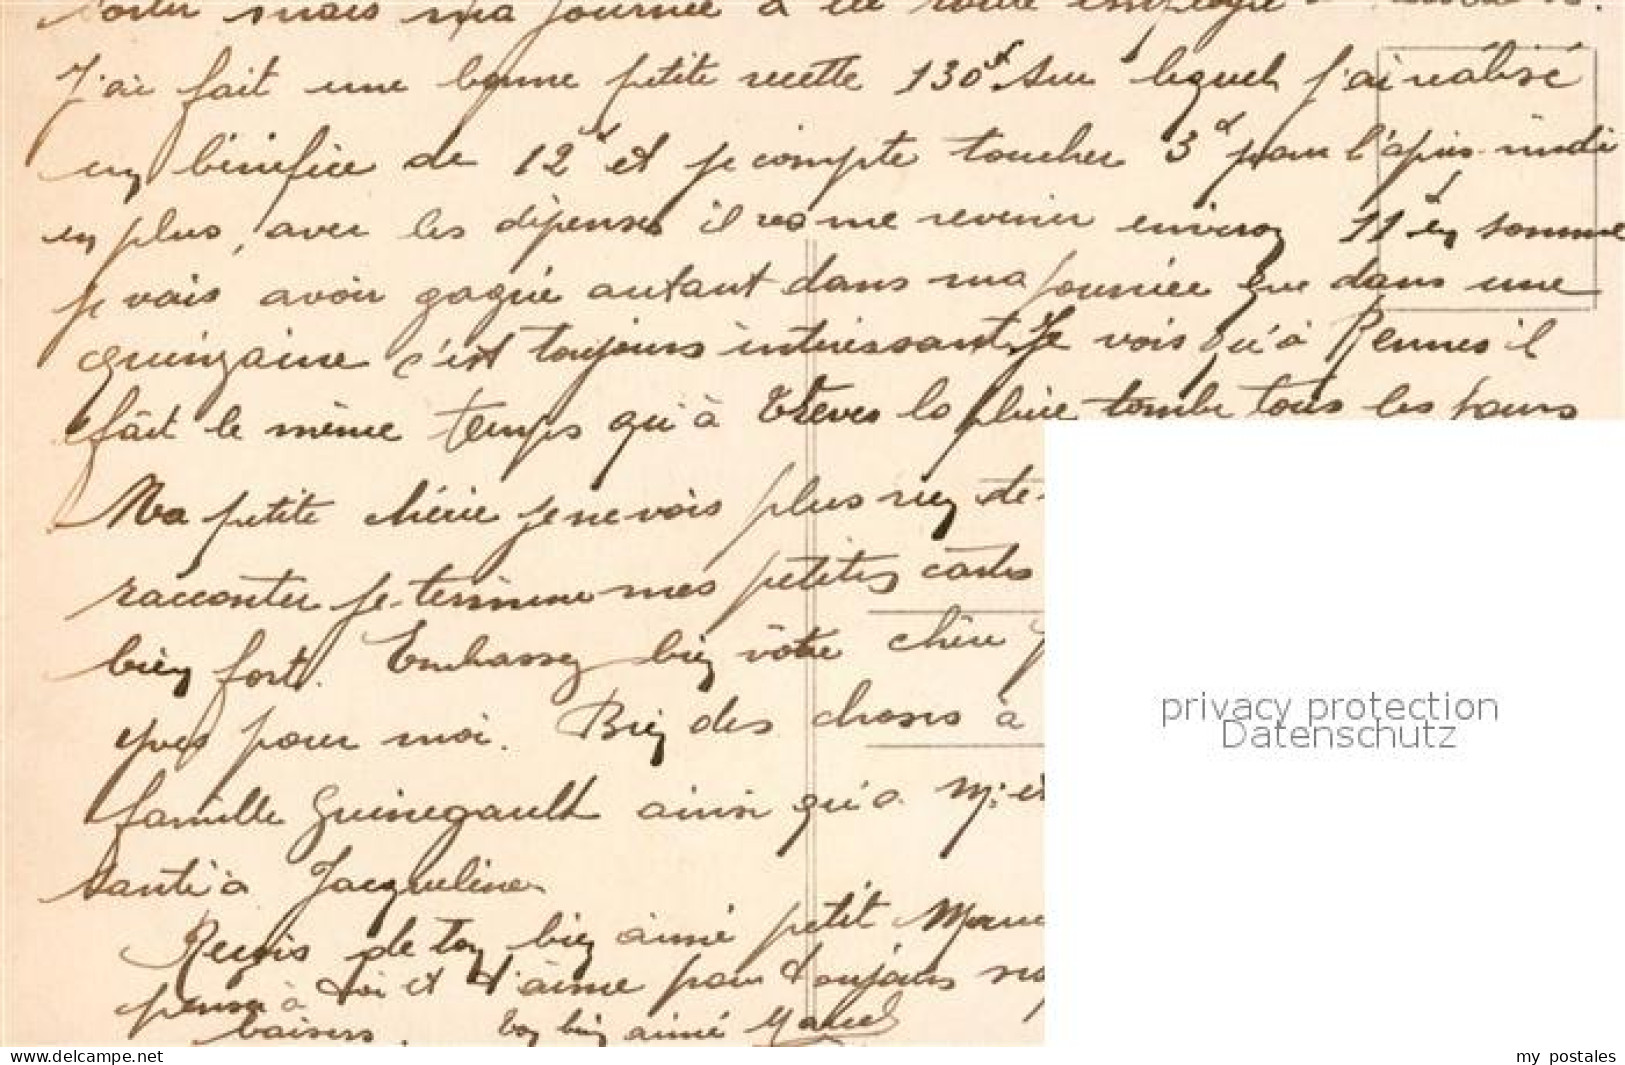 sortir mais ma journée a été toute employée
J'ai fait une bonne petite recette 130d sur lequel j'ai réalisé
un bénéfice de 12d et je compte toucher 3d pour l'après-midi
en plus, avec les dépenses il va me revenir environ 11d en somme
je vais avoir gagné autant dans ma journée que dans une
quinzaine c'est toujours intéressant. Je vois qu'à Rennes il
fait le même temps qu'à Trèves la pluie tombe tous les jours
Ma petite chérie je ne vois plus rien de
raconter je termine mes petites cartes
bien fort. Embassez bien vôtre chère
Yves pour moi. Bien des choses à
famille Guinegault ainsi qu'à M. et
santé à Jacqueline
Reçois de ton bien aimé petit
pense à toi et t'aime pour toujours
baisers. Ton bien aimé Marcel
privacy protection
Datenschutz
www.delcampe.net
my_postales